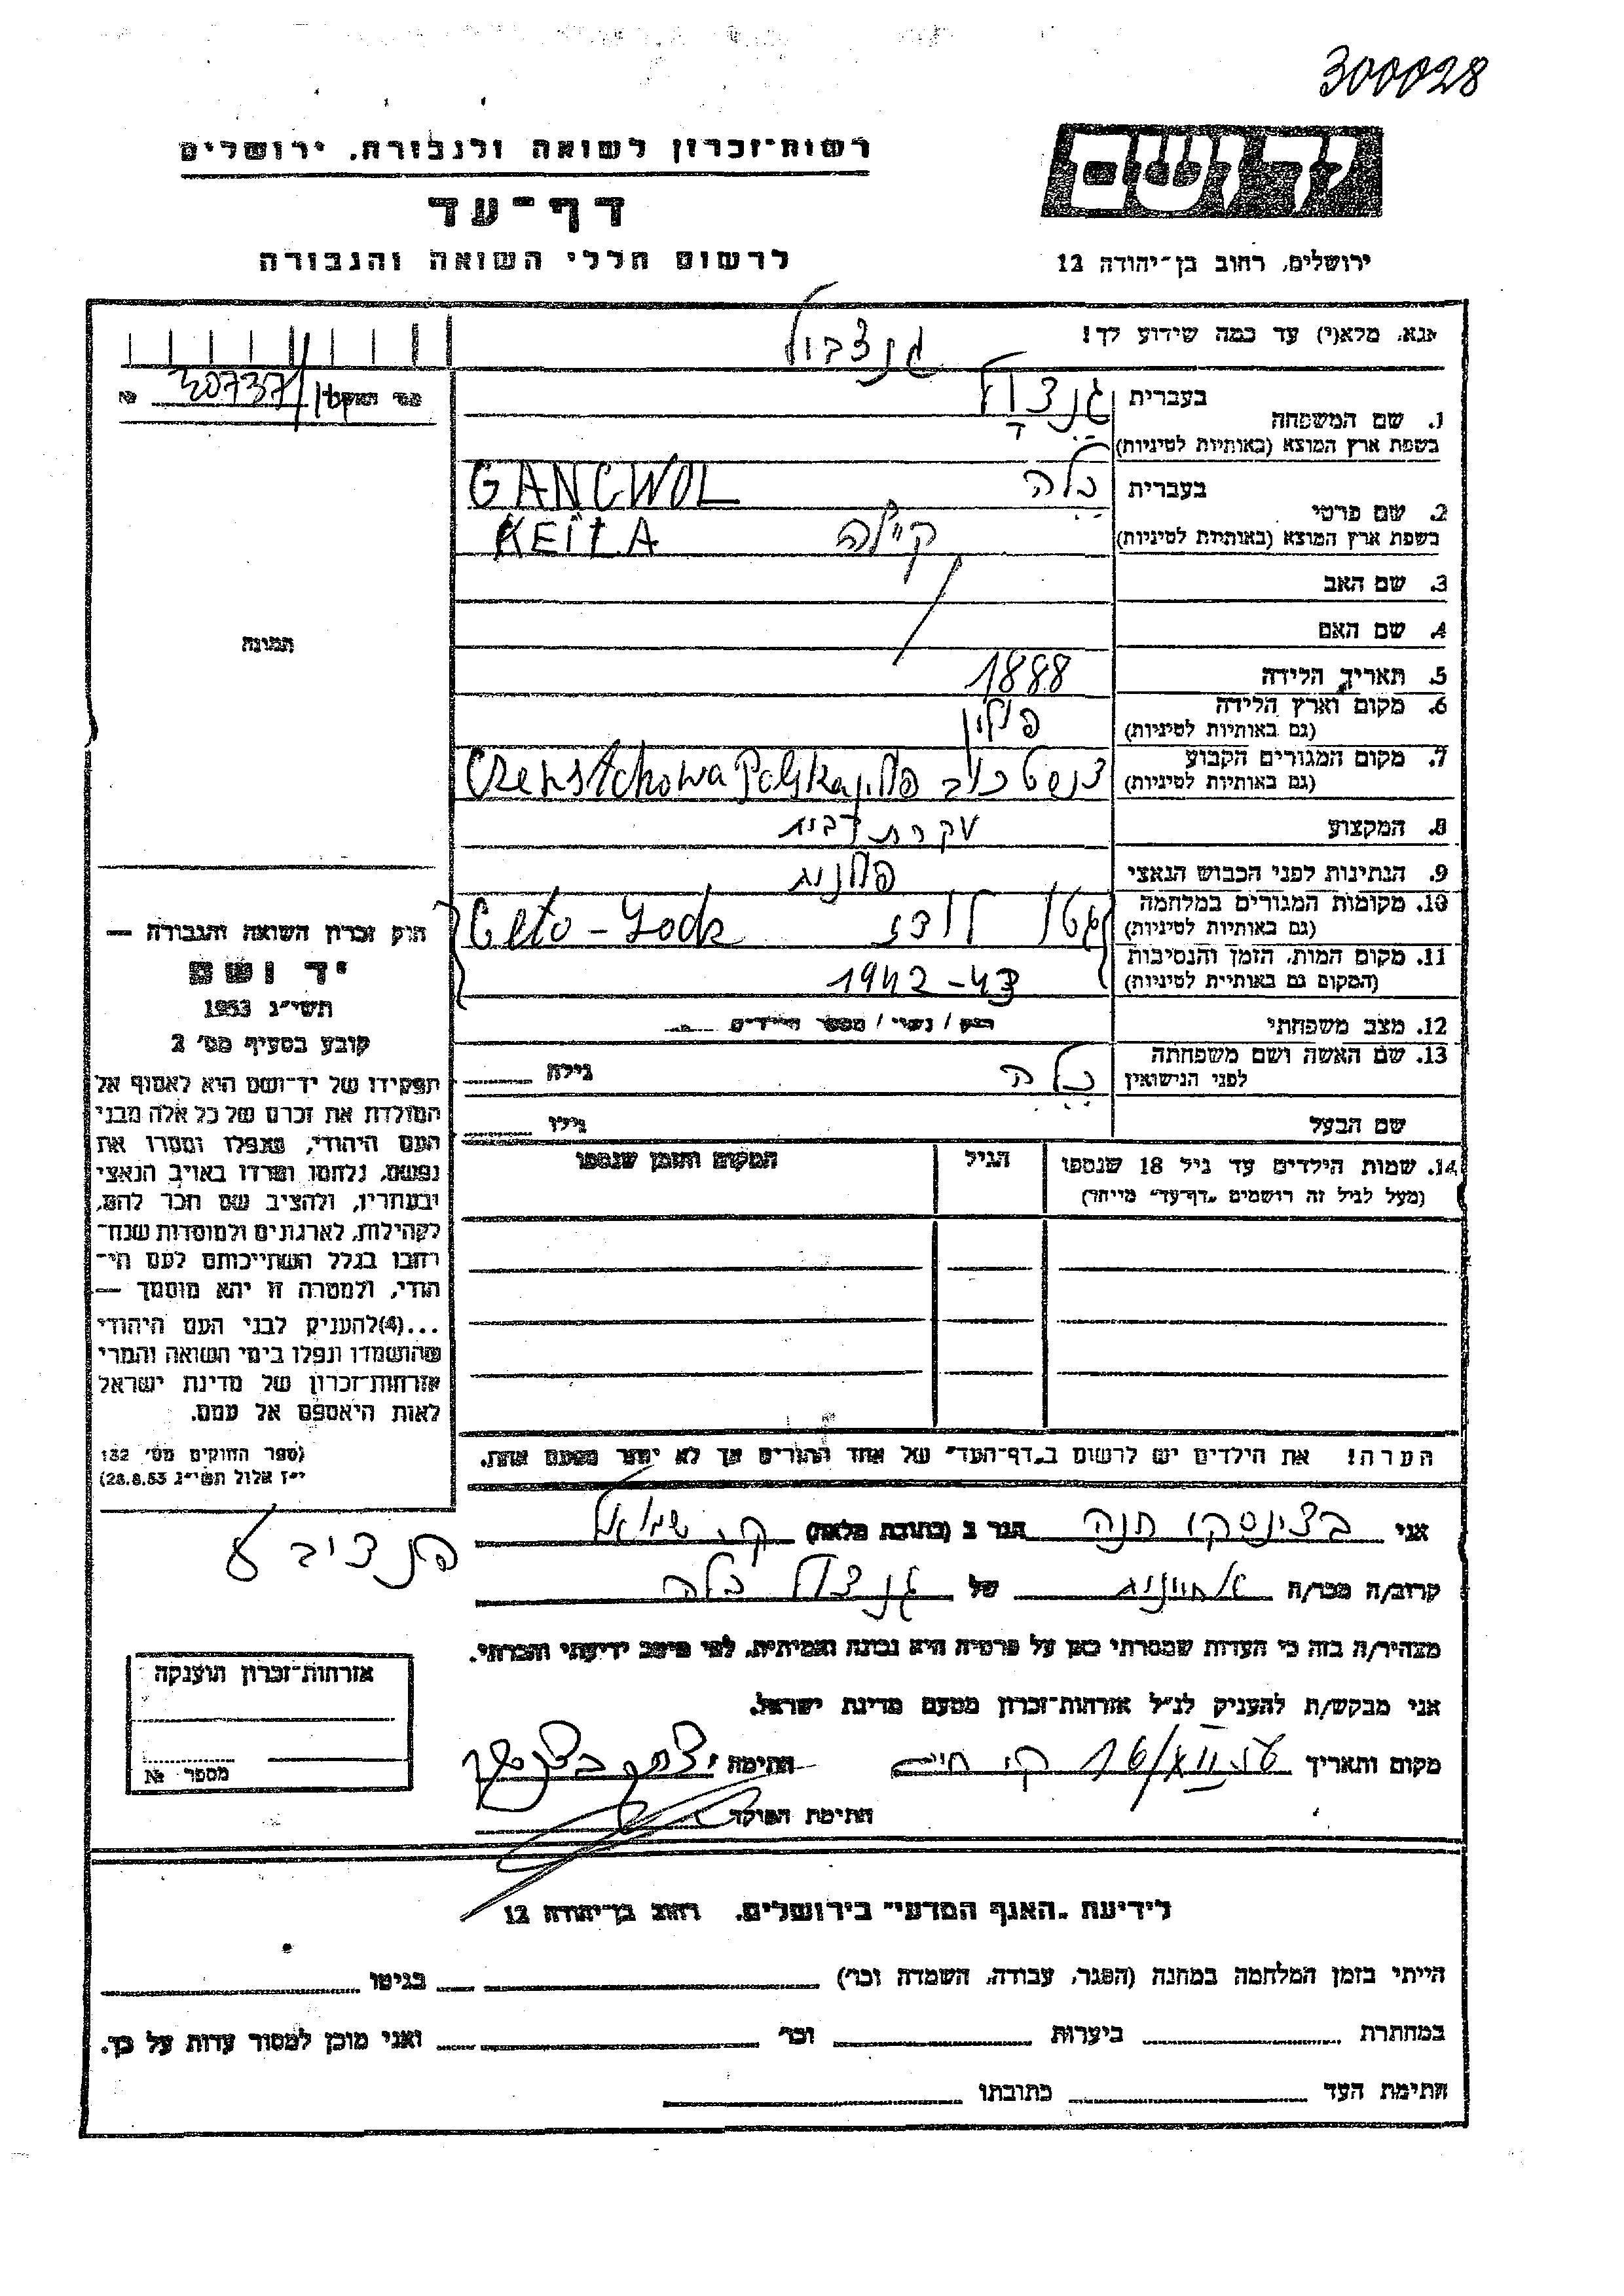 300028
רשות־זכרון לשואה ולגבורה, ירושלים
דף־עד
לרשום חללי השואה והגבורה
יד ושם
ירושלים, רחוב בן־יהודה 12
אנא, מלא(י) עד כמה שידוע לך!
גנצבול
מס' תעוקט
№ 30737
1. שם המשפחה
בעברית
גנצול
בשפת ארץ המוצא (באותיות לטיניות)
GANCWOL
2. שם פרטי
בעברית
בלה
בשפת ארץ המוצא (באותיות לטיניות)
KEILA קיילה
3. שם האב
4. שם האם
5. תאריך הלידה
1888
6. מקום וארץ הלידה
(גם באותיות לטיניות)
פולין
7. מקום המגורים הקבוע
(גם באותיות לטיניות)
Czenstchowa Polska
8. המקצוע
עקרת בית
9. הנתינות לפני הכבוש הנאצי
פולנית
10. מקומות המגורים במלחמה
(גם באותיות לטיניות)
גטו לודז Geto - Lodz
11. מקום המות, הזמן והנסיבות
(המקום גם באותיות לטיניות)
1942-43
12. מצב משפחתי
רוק / נשוי / מספר הילדים
13. שם האשה ושם משפחתה
לפני הנישואין
בלה
גילה
שם הבעל
גילו
14. שמות הילדים עד גיל 18 שנספו
(מעל לגיל זה רושמים „דף־עד" מיוחד)
הגיל
המקום והזמן שנספו
תמונה
חוק זכרון השואה והגבורה —
יד ושם
תשי"ג 1953
קובע בסעיף מס' 2
תפקידו של יד־ושם הוא לאסוף אל
המולדת את זכרם של כל אלה מבני
העם היהודי, שנפלו ומסרו את
נפשם, נלחמו ומרדו באויב הנאצי
ובעוזריו, ולהציב שם וזכר להם,
לקהילות, לארגונים ולמוסדות שנח־
רבו בגלל השתייכותם לעם הי־
הודי, ולמטרה זו יהא מוסמך —
...(4)להעניק לבני העם היהודי
שהושמדו ונפלו בימי השואה והמרי
אזרחות־זכרון של מדינת ישראל
לאות היאספם אל עמם.
(ספר החוקים מס' 132
י"ז אלול תשי"ג 28.8.53)
הערה! את הילדים יש לרשום ב„דף־העד" על אחד ההורים אך לא יותר מפעם אחת.
אני בצינסקי חנה הגר ב (כתובת מלאה) ק. שמואל
קרוב/ה מכר/ה של גנצול בלה
מצהיר/ה בזה כי העדות שמסרתי כאן על פרטיה היא נכונה ואמיתית, לפי מיטב ידיעתי והכרתי.
אני מבקש/ת להעניק לנ"ל אזרחות־זכרון מטעם מדינת ישראל.
מקום ותאריך ק. חיים חתימה
חתימת הפוקד
אזרחות־זכרון הוענקה
מספר №
לידיעת „האגף המדעי" בירושלים, רחוב בן־יהודה 12
הייתי בזמן המלחמה במחנה (הסגר, עבודה, השמדה וכו') בגיטו
במחתרת ביערות וכו' ואני מוכן למסור עדות על כך.
חתימת העד כתובתו